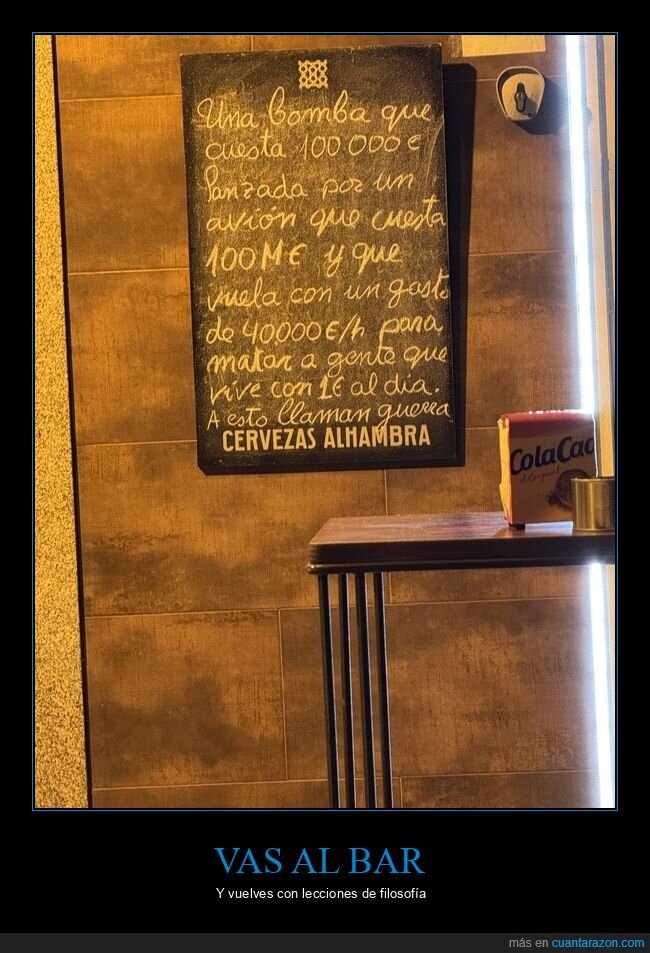 Una bomba que
cuesta 100000€
lanzada por un
avión que cuesta
100M€ y que
vuela con un gasto
de 40000€/h para
matar a gente que
vive con 1€ al día.
A esto llaman guerra
CERVEZAS ALHAMBRA
ColaCao
el original
VAS AL BAR
Y vuelves con lecciones de filosofía
más en cuantarazon.com